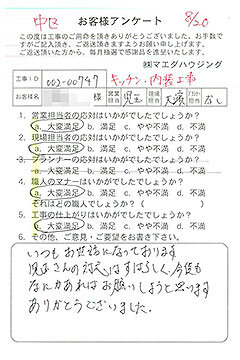 中区 お客様アンケート 8/20
この度は工事のご用命を頂きありがとうございました。お手数で
すがご記入頂き、ご返送頂きますようお願い申し上げます。
ご返送頂いた方から、毎月抽選で感謝品を進呈いたします。
㈱マエダハウジング
工事ID 003-00747 キッチン・内装工事
お客様名 様 営業担当 児玉 現場担当 大家 なし
1. 営業担当者の応対はいかがでしたでしょうか?
a. 大変満足 b. 満足 c. やや不満 d. 不満
2. 現場担当者の応対はいかがでしたでしょうか?
a. 大変満足 b. 満足 c. やや不満 d. 不満
3. プランナーの応対はいかがでしたでしょうか?
a. 大変満足 b. 満足 c. やや不満 d. 不満
4. 職人のマナーはいかがでしたでしょうか?
a. 大変満足 b. 満足 c. やや不満 d. 不満
それはどの職人でしょう?( )
5. 工事の仕上がりはいかがでしたでしょうか?
a. 大変満足 b. 満足 c. やや不満 d. 不満
6. その他、ご意見・ご要望をお書き下さい。
いつもお世話になっております
児玉さんの対応はすばらしく、今後も
なにかあればお願いしようと思います
ありがとうございました。